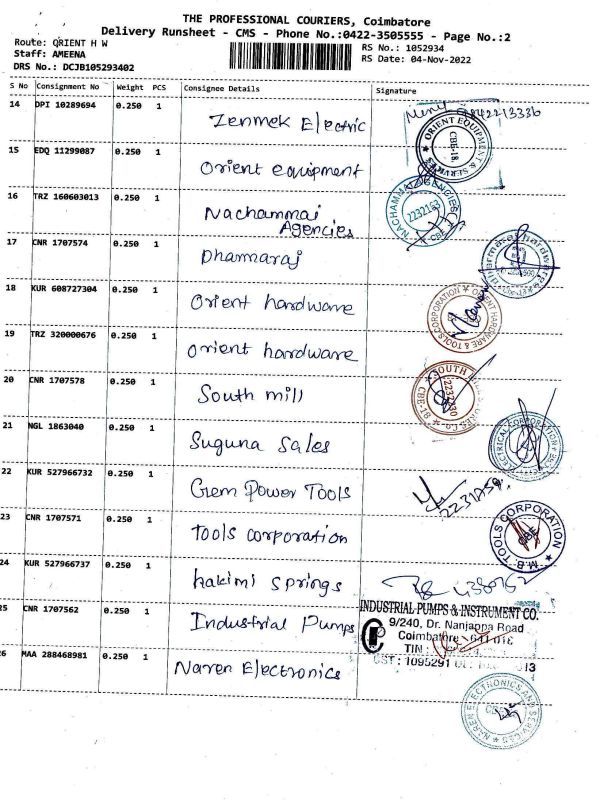 THE PROFESSIONAL COURIERS, Coimbatore
Delivery Runsheet - CMS - Phone No.:0422-3505555 - Page No.:2
Route: ORIENT H W
RS No.: 1052934
Staff: AMEENA
RS Date: 04-Nov-2022
DRS No.: DCJB105293402
S No Consignment No Weight PCS Consignee Details Signature
14 DPI 10289694 0.250 1 Zenmek Electric
ORIENT EQUIPMENT & SERVICES
CBE-18
15 EDQ 11299087 0.250 1 Orient equipment
16 TRZ 160603013 0.250 1 Nachammai Agencies
NACHAMMAI AGENCIES
2232163
CBE
17 CNR 1707574 0.250 1 Dharmaraj
18 KUR 608727304 0.250 1 Orient hardware
ORIENT HARDWARE & TOOLS CORPORATION
19 TRZ 320000676 0.250 1 Orient hardware
20 CNR 1707578 0.250 1 South mill
SOUTH
CBE-18
21 NGL 1863040 0.250 1 Suguna Sales
ELECTRICAL CORPORATION
22 KUR 527966732 0.250 1 Gem Power Tools
23 CNR 1707571 0.250 1 Tools corporation
M.B. TOOLS CORPORATION
CBE
24 KUR 527966737 0.250 1 hakimi springs
25 CNR 1707562 0.250 1 Industrial Pumps
INDUSTRIAL PUMPS & INSTRUMENT CO.
9/240, Dr. Nanjappa Road
Coimbatore - 641 018
TIN :
CST : 1095291
26 MAA 288468981 0.250 1 Naren Electronics
NAREN ELECTRONICS AND SERVICES
CBE